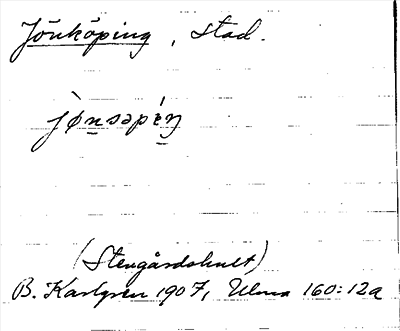 Jönköping, stad.
jø̀nsəpíŋ
(Stengårdshult)
B. Karlgren 1907, Ulma 160:12a